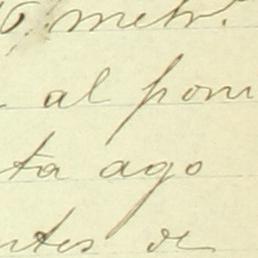 6 metr.
al pon
ta ago
ntes de